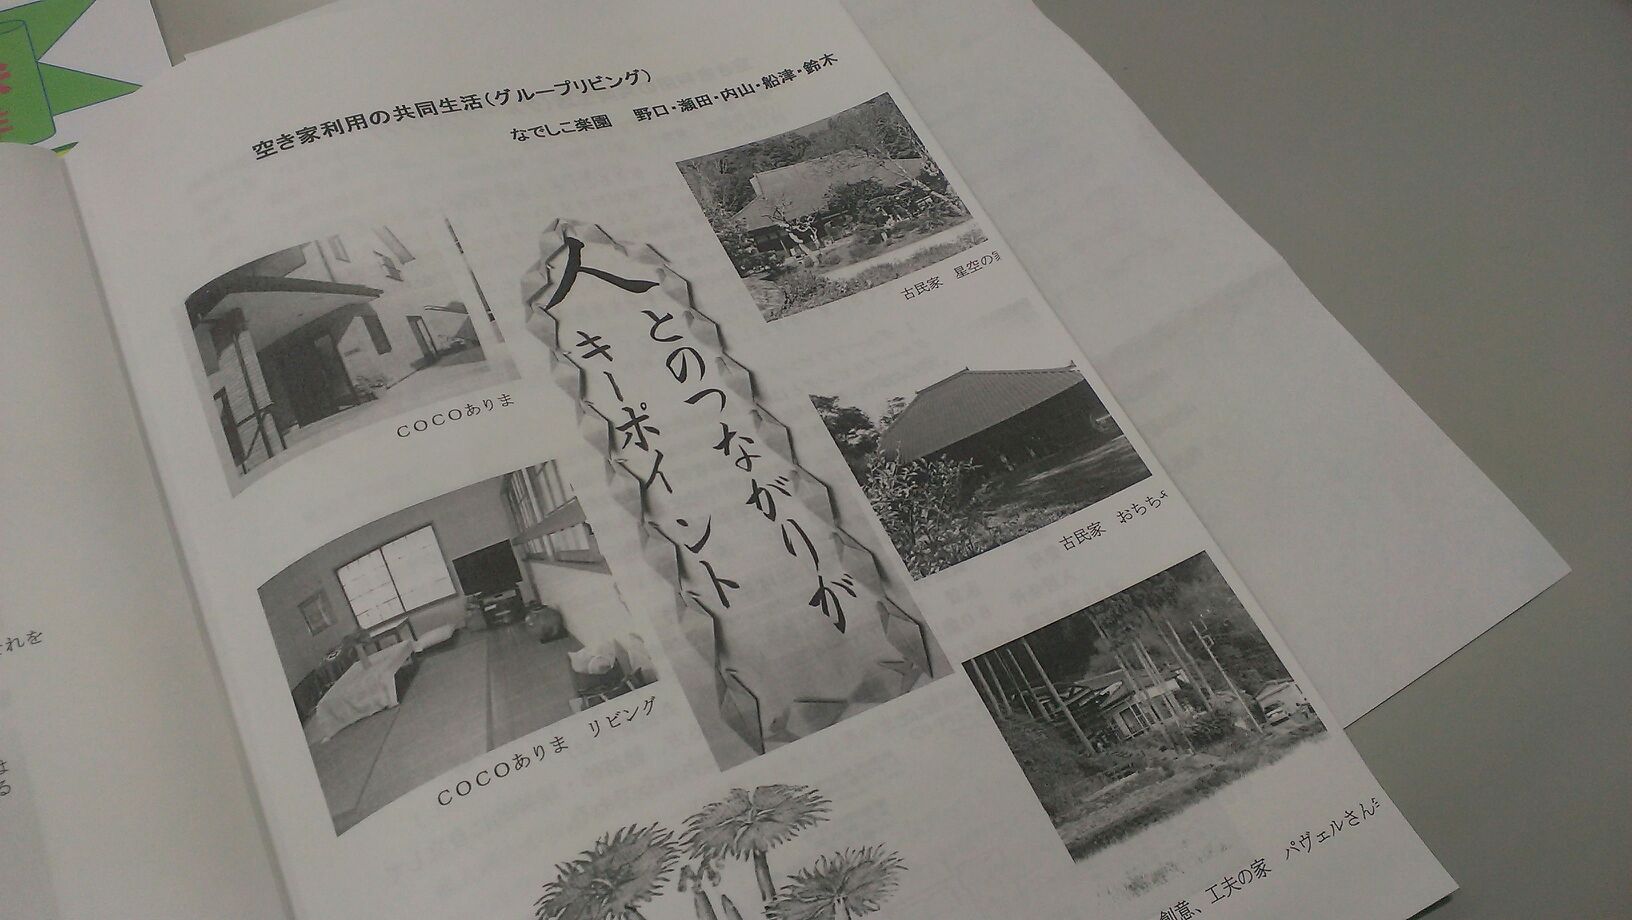 空き家利用の共同生活(グループリビング)
なでしこ楽園　野口・瀬田・内山・船津・鈴木
COCOありま
COCOありま　リビング
人とのつながりが
キーポイント
古民家　星空の
古民家　おちち
創意、工夫の家　パヴェルさん
それを
は
る